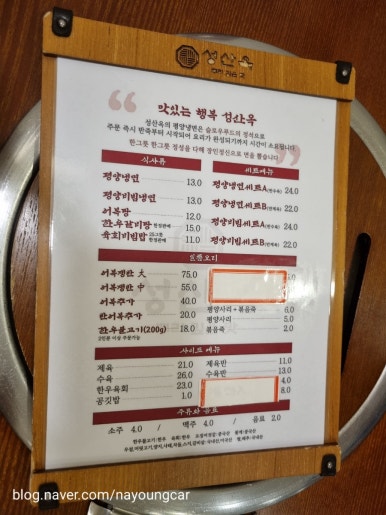 성산옥
맛있는 행복 성산옥
성산옥의 평양냉면은 슬로우푸드의 정석으로
주문 즉시 반죽부터 시작되어 요리가 완성되기까지 시간이 소요됩니다
한그릇 한그릇 정성을 다해 장인정신으로 면을 뽑습니다
식사류
평양냉면 13.0
평양비빔냉면 13.0
어복탕 12.0
한우갈비탕 한정판매 15.0
육회비빔밥 한정판매 11.0
세트메뉴
평양냉면세트A(한우육) 24.0
평양냉면세트B(한우육) 22.0
평양비빔세트A 24.0
평양비빔세트B 22.0
일품요리
어복쟁반 大 75.0
어복쟁반 中 55.0
어복추가 40.0
반어복추가 20.0
한우불고기(200g) 18.0
2인분 이상 주문가능
평양사리+볶음죽 6.0
평양사리 5.0
볶음죽 2.0
사이드 메뉴
제육 21.0
수육 26.0
한우육회 23.0
공깃밥 1.0
제육반 11.0
수육반 13.0
4.0
8.0
주류와 음료
소주 4.0 / 맥주 4.0 / 음료 2.0
blog.naver.com/nayoungcar